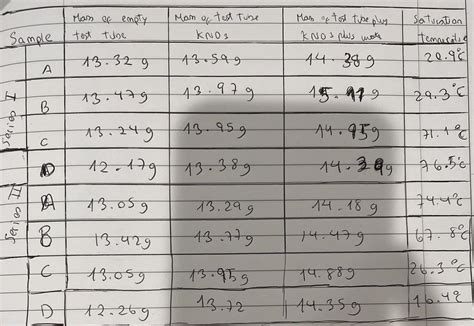 Sample | Mass of empty test tube | Mass of test tube KNO3 | Mass of test tube plus KNO3 plus water | Saturation temperature
Series I
A | 13.32g | 13.59g | 14.38g | °C
B | 13.47g | 13.97g | g | °C
C | 13.24g | 13.95g | 14.95g | 71.1°C
D | 12.17g | 13.38g | g | 76.5°C
Series II
A | 13.05g | 13.29g | 14.18g | 74.4°C
B | 13.42g | 13.77g | 14.47g | 67.8°C
C | 13.05g | 13.95g | 14.88g | 26.3°C
D | 12.26g | 13.72 | 14.35g | 16.4°C